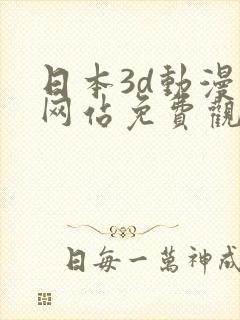 日本3d動漫
网佔免費觀
日每一萬神成